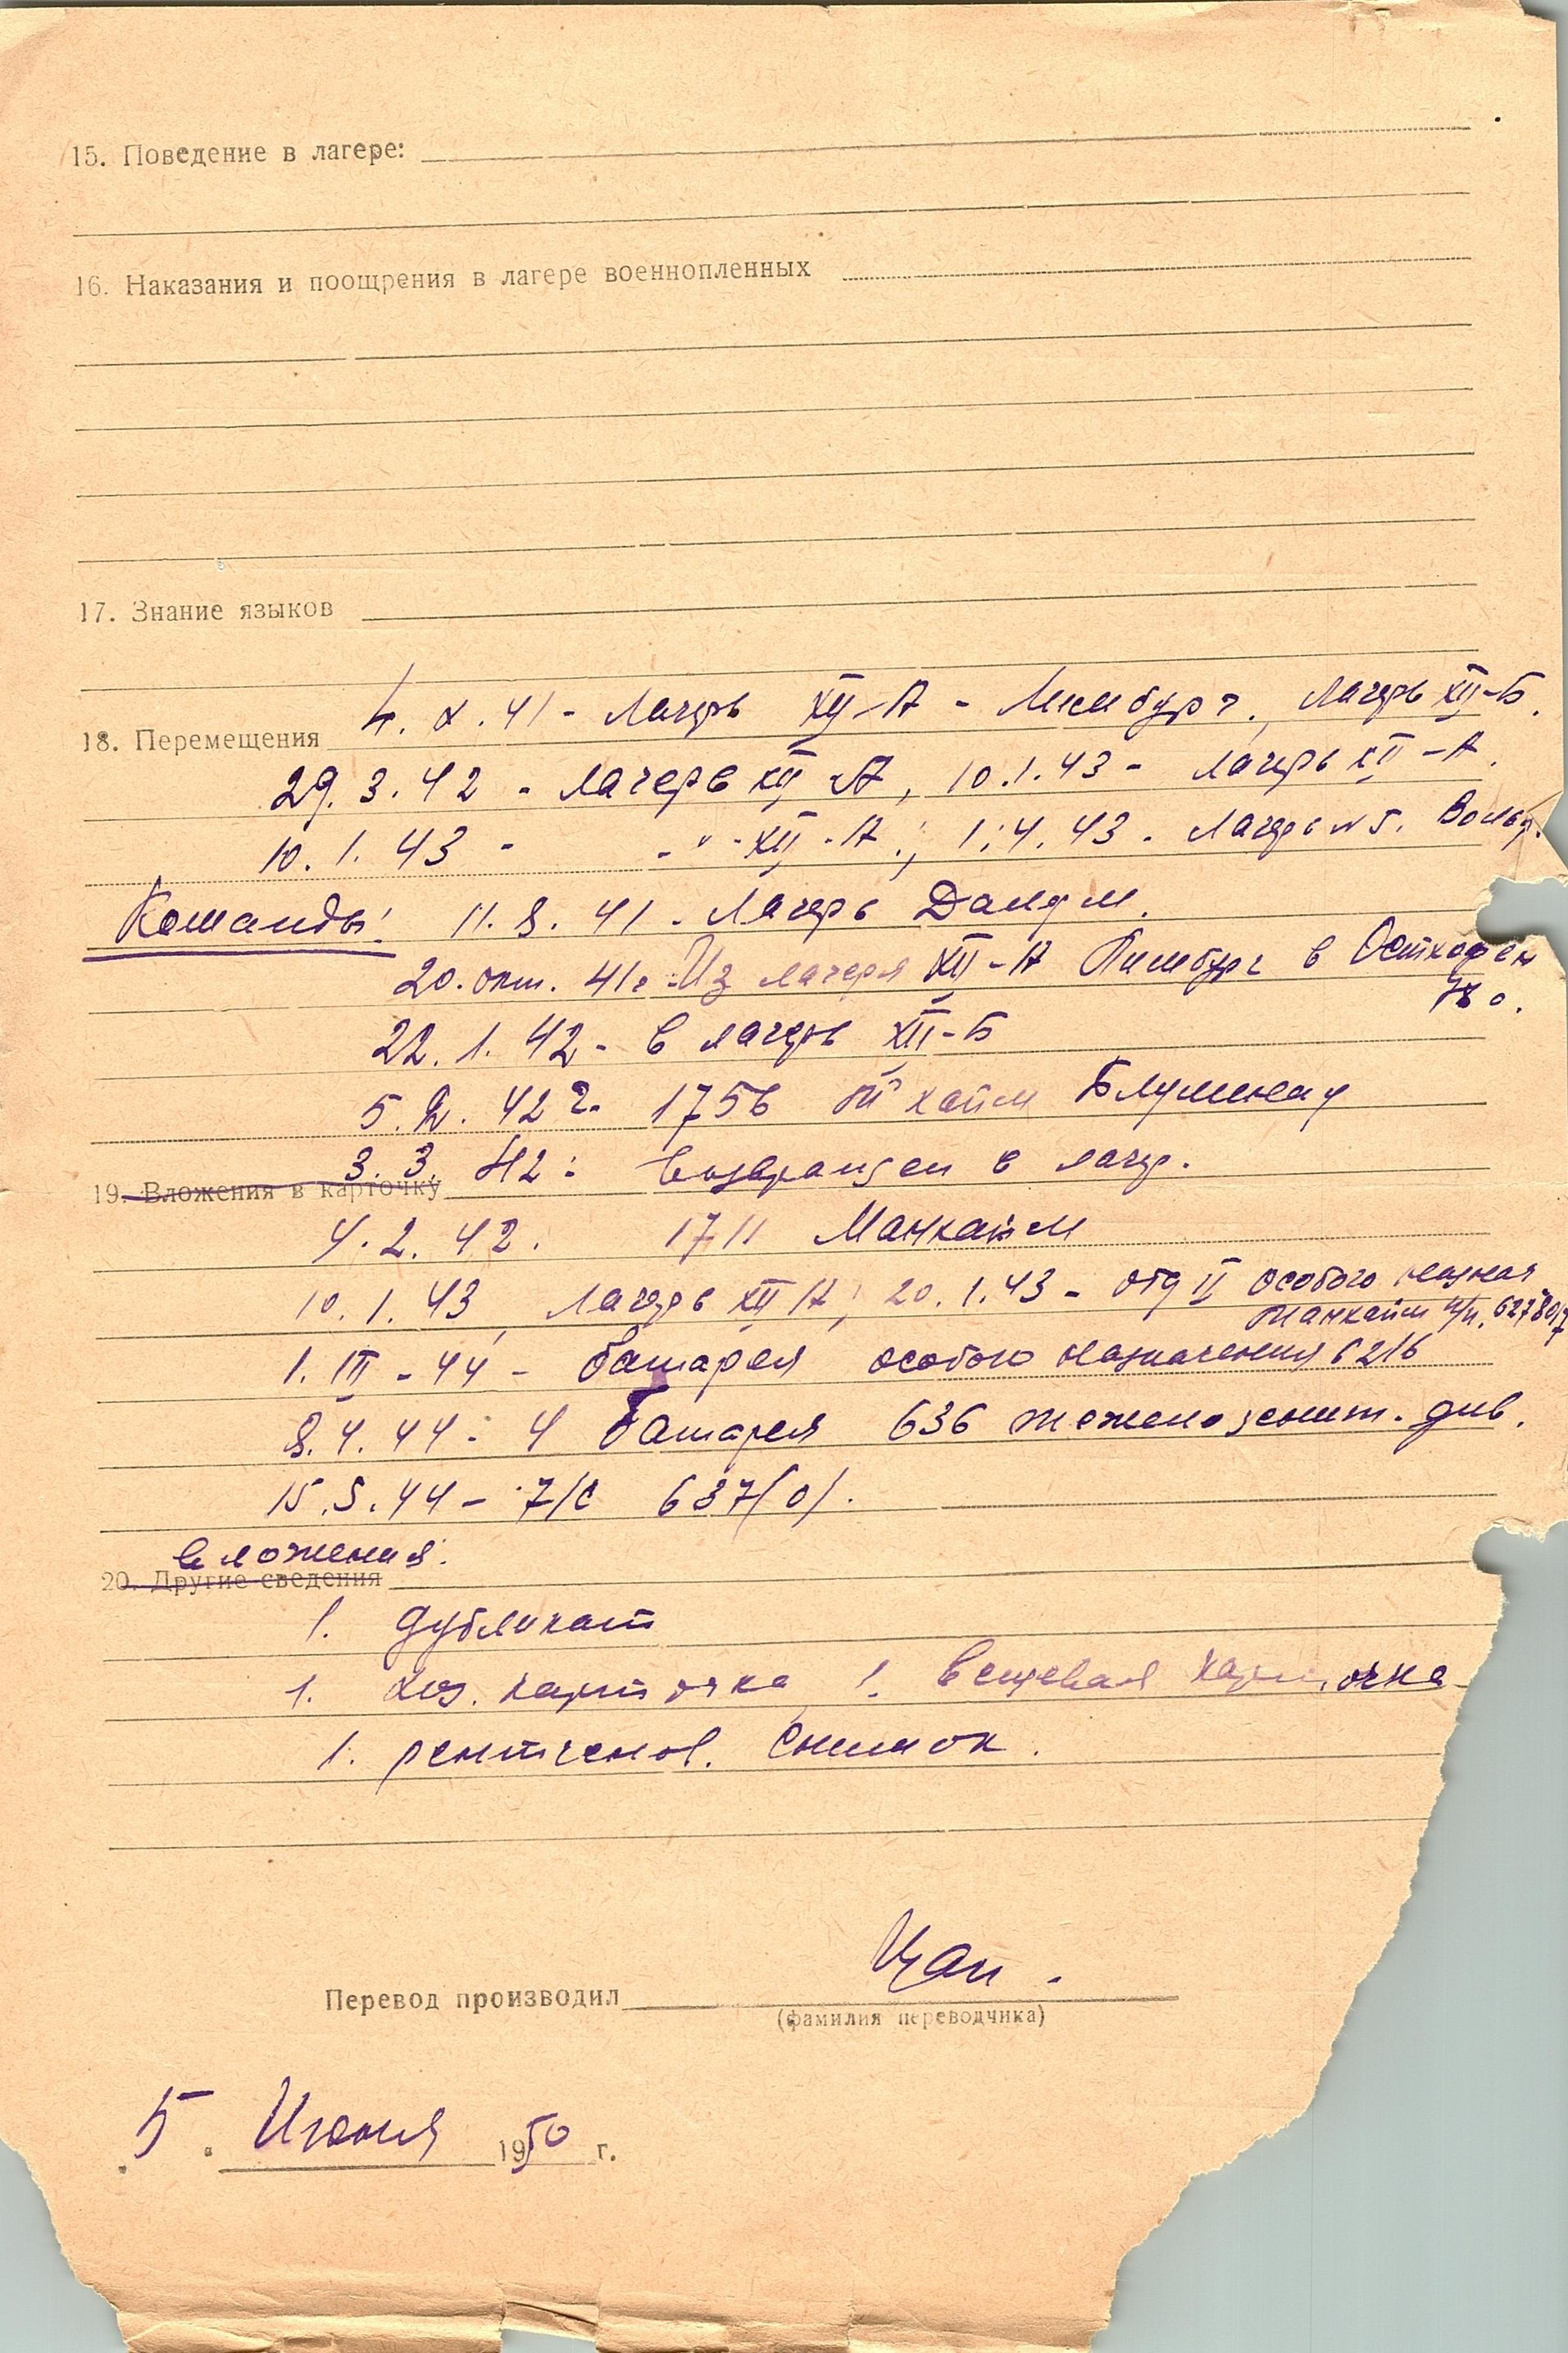 15. Поведение в лагере:
16. Наказания и поощрения в лагере военнопленных
17. Знание языков
18. Перемещения 4. X. 41 - Лагерь XII-А - Лимбург, лагерь XII-Б.
29. 3. 42 - лагерь XII-А, 10.1.43 - лагерь XII-А.
10. 1. 43 - - " - XII-А.; 1.4.43 - Лагерь № 5.
Команды: 11. 8. 41 - Лагерь
20. окт. 41г. Из лагеря XII-А Лимбург в Остхофен
22. 1. 42 - в лагерь XII-Б
5. 2. 42 г. 1756 М'хайм Блуменау
3. 3. 42: возвращен в лагр.
19. Вложения в карточку
4. 2. 42. 1711 Манхайм
10. 1. 43, лагерь XII А; 20. 1. 43 - отд II особого назнач
Манхайм п/п. 62780/7
1. III - 44 - батарея особого назначения 6216
8. 4. 44 - 4 батарея 636 тяжело зенит. див.
15. 5. 44 - 7/с 637/о/.
вложения:
20. Другие сведения
1. дубликат
1. карточка 1. вещевая карточка
1. рентгенов. снимок.
Перевод производил
(фамилия переводчика)
5 " Июня 1950 г.